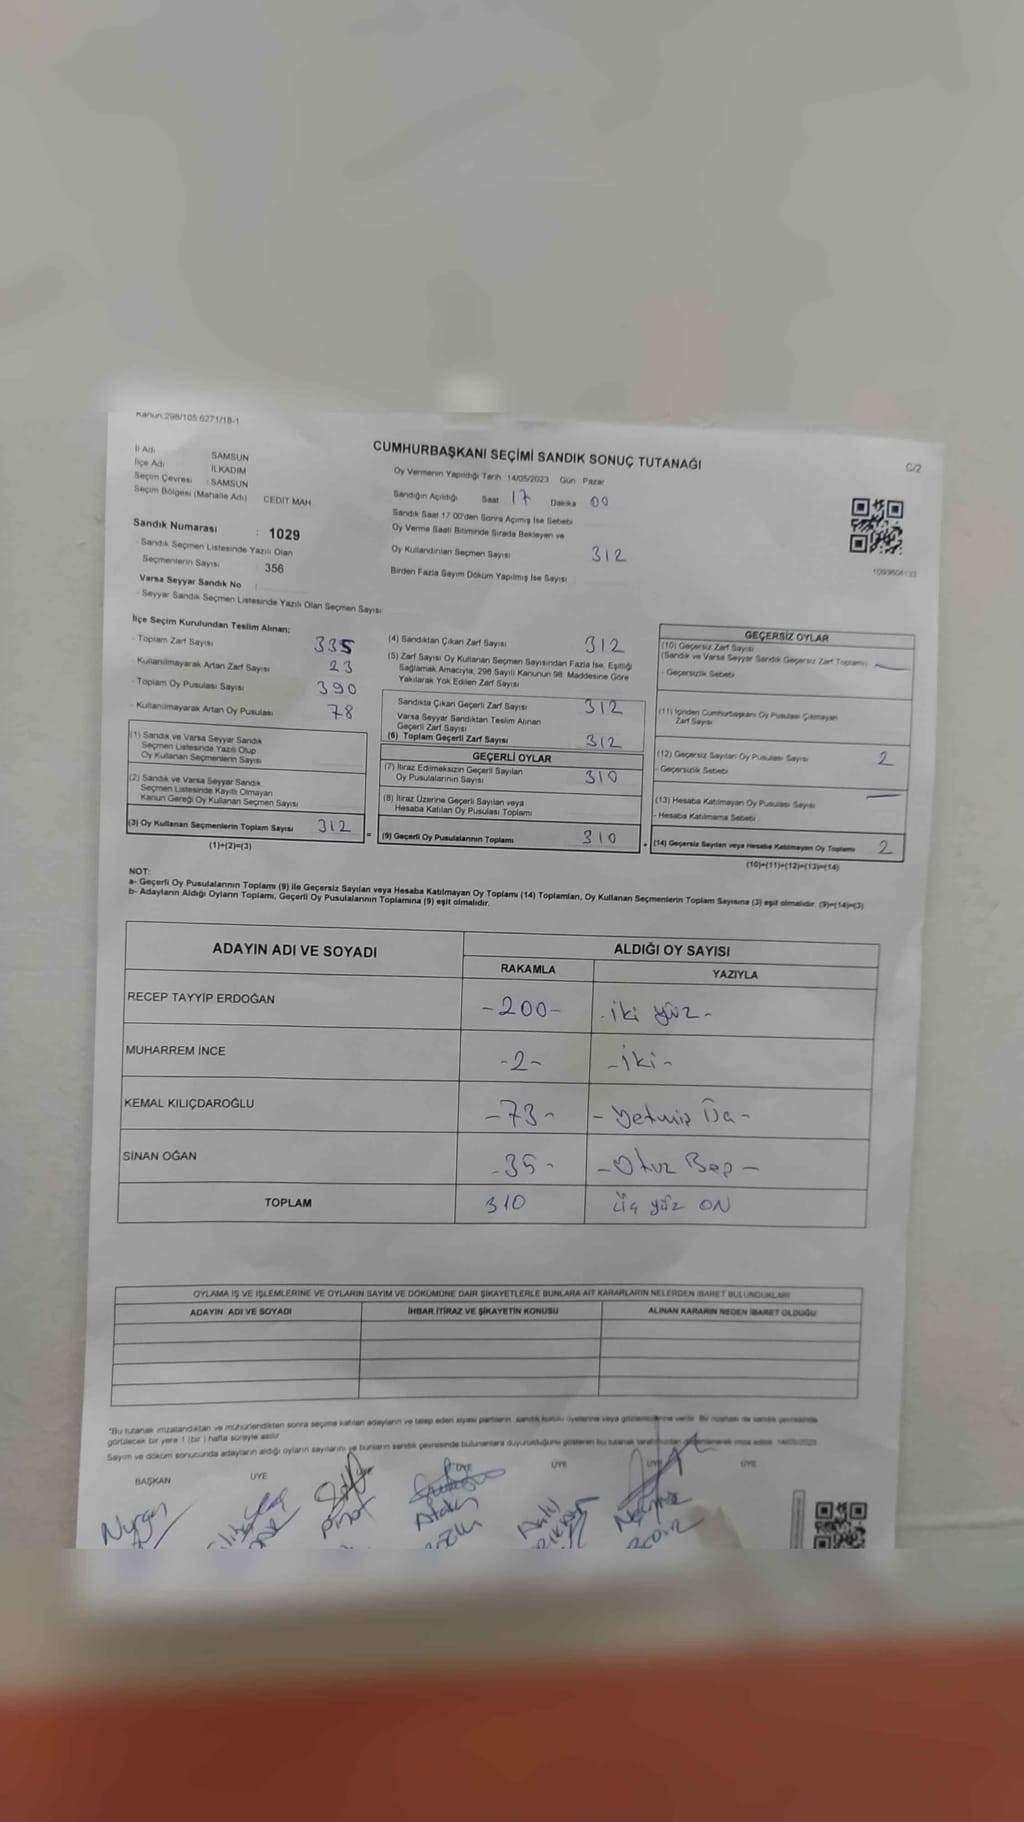 Kanun:298/105 6271/18-1
CUMHURBAŞKANI SEÇİMİ SANDIK SONUÇ TUTANAĞI
C/2
İl Adı SAMSUN
İlçe Adı İLKADIM
Seçim Çevresi : SAMSUN
Seçim Bölgesi (Mahalle Adı) CEDİT MAH
Oy Vermenin Yapıldığı Tarih 14/05/2023 Gün Pazar
Sandığın Açıldığı Saat 17 Dakika 00
Sandık Saat 17 00'den Sonra Açımış İse Sebebi
Oy Verme Saati Bitiminde Sırada Bekleyen ve
Oy Kullandırılan Seçmen Sayısı 312
Birden Fazla Sayım Döküm Yapılmış İse Sayısı
Sandık Numarası : 1029
- Sandık Seçmen Listesinde Yazılı Olan
Seçmenlerin Sayısı 356
Varsa Seyyar Sandık No
- Seyyar Sandık Seçmen Listesinde Yazılı Olan Seçmen Sayısı
İlçe Seçim Kurulundan Teslim Alınan;
- Toplam Zarf Sayısı 335
- Kullanılmayarak Artan Zarf Sayısı 23
- Toplam Oy Pusulası Sayısı 390
- Kullanılmayarak Artan Oy Pusulası 78
(1) Sandık ve Varsa Seyyar Sandık
Seçmen Listesinde Yazılı Olup
Oy Kullanan Seçmenlerin Sayısı
(2) Sandık ve Varsa Seyyar Sandık
Seçmen Listesinde Kayıtlı Olmayan
Kanun Gereği Oy Kullanan Seçmen Sayısı
(3) Oy Kullanan Seçmenlerin Toplam Sayısı 312
(1)+(2)=(3)
(4) Sandıktan Çıkan Zarf Sayısı 312
(5) Zarf Sayısı Oy Kullanan Seçmen Sayısından Fazla İse, Eşitliği
Sağlamak Amacıyla, 298 Sayılı Kanunun 98. Maddesine Göre
Yakılarak Yok Edilen Zarf Sayısı
Sandıkta Çıkan Geçerli Zarf Sayısı 312
Varsa Seyyar Sandıktan Teslim Alınan
Geçerli Zarf Sayısı
(6) Toplam Geçerli Zarf Sayısı 312
GEÇERLİ OYLAR
(7) İtiraz Edilmeksizin Geçerli Sayılan
Oy Pusulalarının Sayısı 310
(8) İtiraz Üzerine Geçerli Sayılan veya
Hesaba Katılan Oy Pusulası Toplamı
= (9) Geçerli Oy Pusulalarının Toplamı 310
GEÇERSİZ OYLAR
(10) Geçersiz Zarf Sayısı
(Sandık ve Varsa Seyyar Sandık Geçersiz Zarf Toplamı) —
- Geçersizlik Sebebi
(11) İçinden Cumhurbaşkanı Oy Pusulası Çıkmayan
Zarf Sayısı
(12) Geçersiz Sayılan Oy Pusulası Sayısı 2
- Geçersizlik Sebebi
(13) Hesaba Katılmayan Oy Pusulası Sayısı —
- Hesaba Katılmama Sebebi
+ (14) Geçersiz Sayılan veya Hesaba Katılmayan Oy Toplamı 2
(10)+(11)+(12)+(13)=(14)
NOT:
a- Geçerli Oy Pusulalarının Toplamı (9) ile Geçersiz Sayılan veya Hesaba Katılmayan Oy Toplamı (14) Toplamları, Oy Kullanan Seçmenlerin Toplam Sayısına (3) eşit olmalıdır. (9)+(14)=(3)
b- Adayların Aldığı Oyların Toplamı, Geçerli Oy Pusulalarının Toplamına (9) eşit olmalıdır.
ADAYIN ADI VE SOYADI ALDIĞI OY SAYISI
RAKAMLA YAZIYLA
RECEP TAYYİP ERDOĞAN -200- - iki yüz -
MUHARREM İNCE -2- - iki -
KEMAL KILIÇDAROĞLU -73- - Yetmiş Üç -
SİNAN OĞAN -35- - Otuz Beş -
TOPLAM 310 üç yüz ON
OYLAMA İŞ VE İŞLEMLERİNE VE OYLARIN SAYIM VE DÖKÜMÜNE DAİR ŞİKAYETLERLE BUNLARA AİT KARARLARIN NELERDEN İBARET BULUNDUKLARI
ADAYIN ADI VE SOYADI İHBAR İTİRAZ VE ŞİKAYETİN KONUSU ALINAN KARARIN NEDEN İBARET OLDUĞU
*Bu tutanak imzalandıktan ve mühürlendikten sonra seçime katılan adayların ve talep eden siyasi partilerin sandık kurulu üyelerine veya gözlemcilerine verilir. Bir nüshası da sandık çevresinde
görülecek bir yere 1 (bir) hafta süreyle asılır
Sayım ve döküm sonucunda adayların aldığı oyların sayılarını ve bunların sandık çevresinde bulunanlara duyurulduğunu gösteren bu tutanak tarafımızdan düzenlenerek imza edildi. 14/05/2023
BAŞKAN ÜYE ÜYE ÜYE ÜYE ÜYE ÜYE